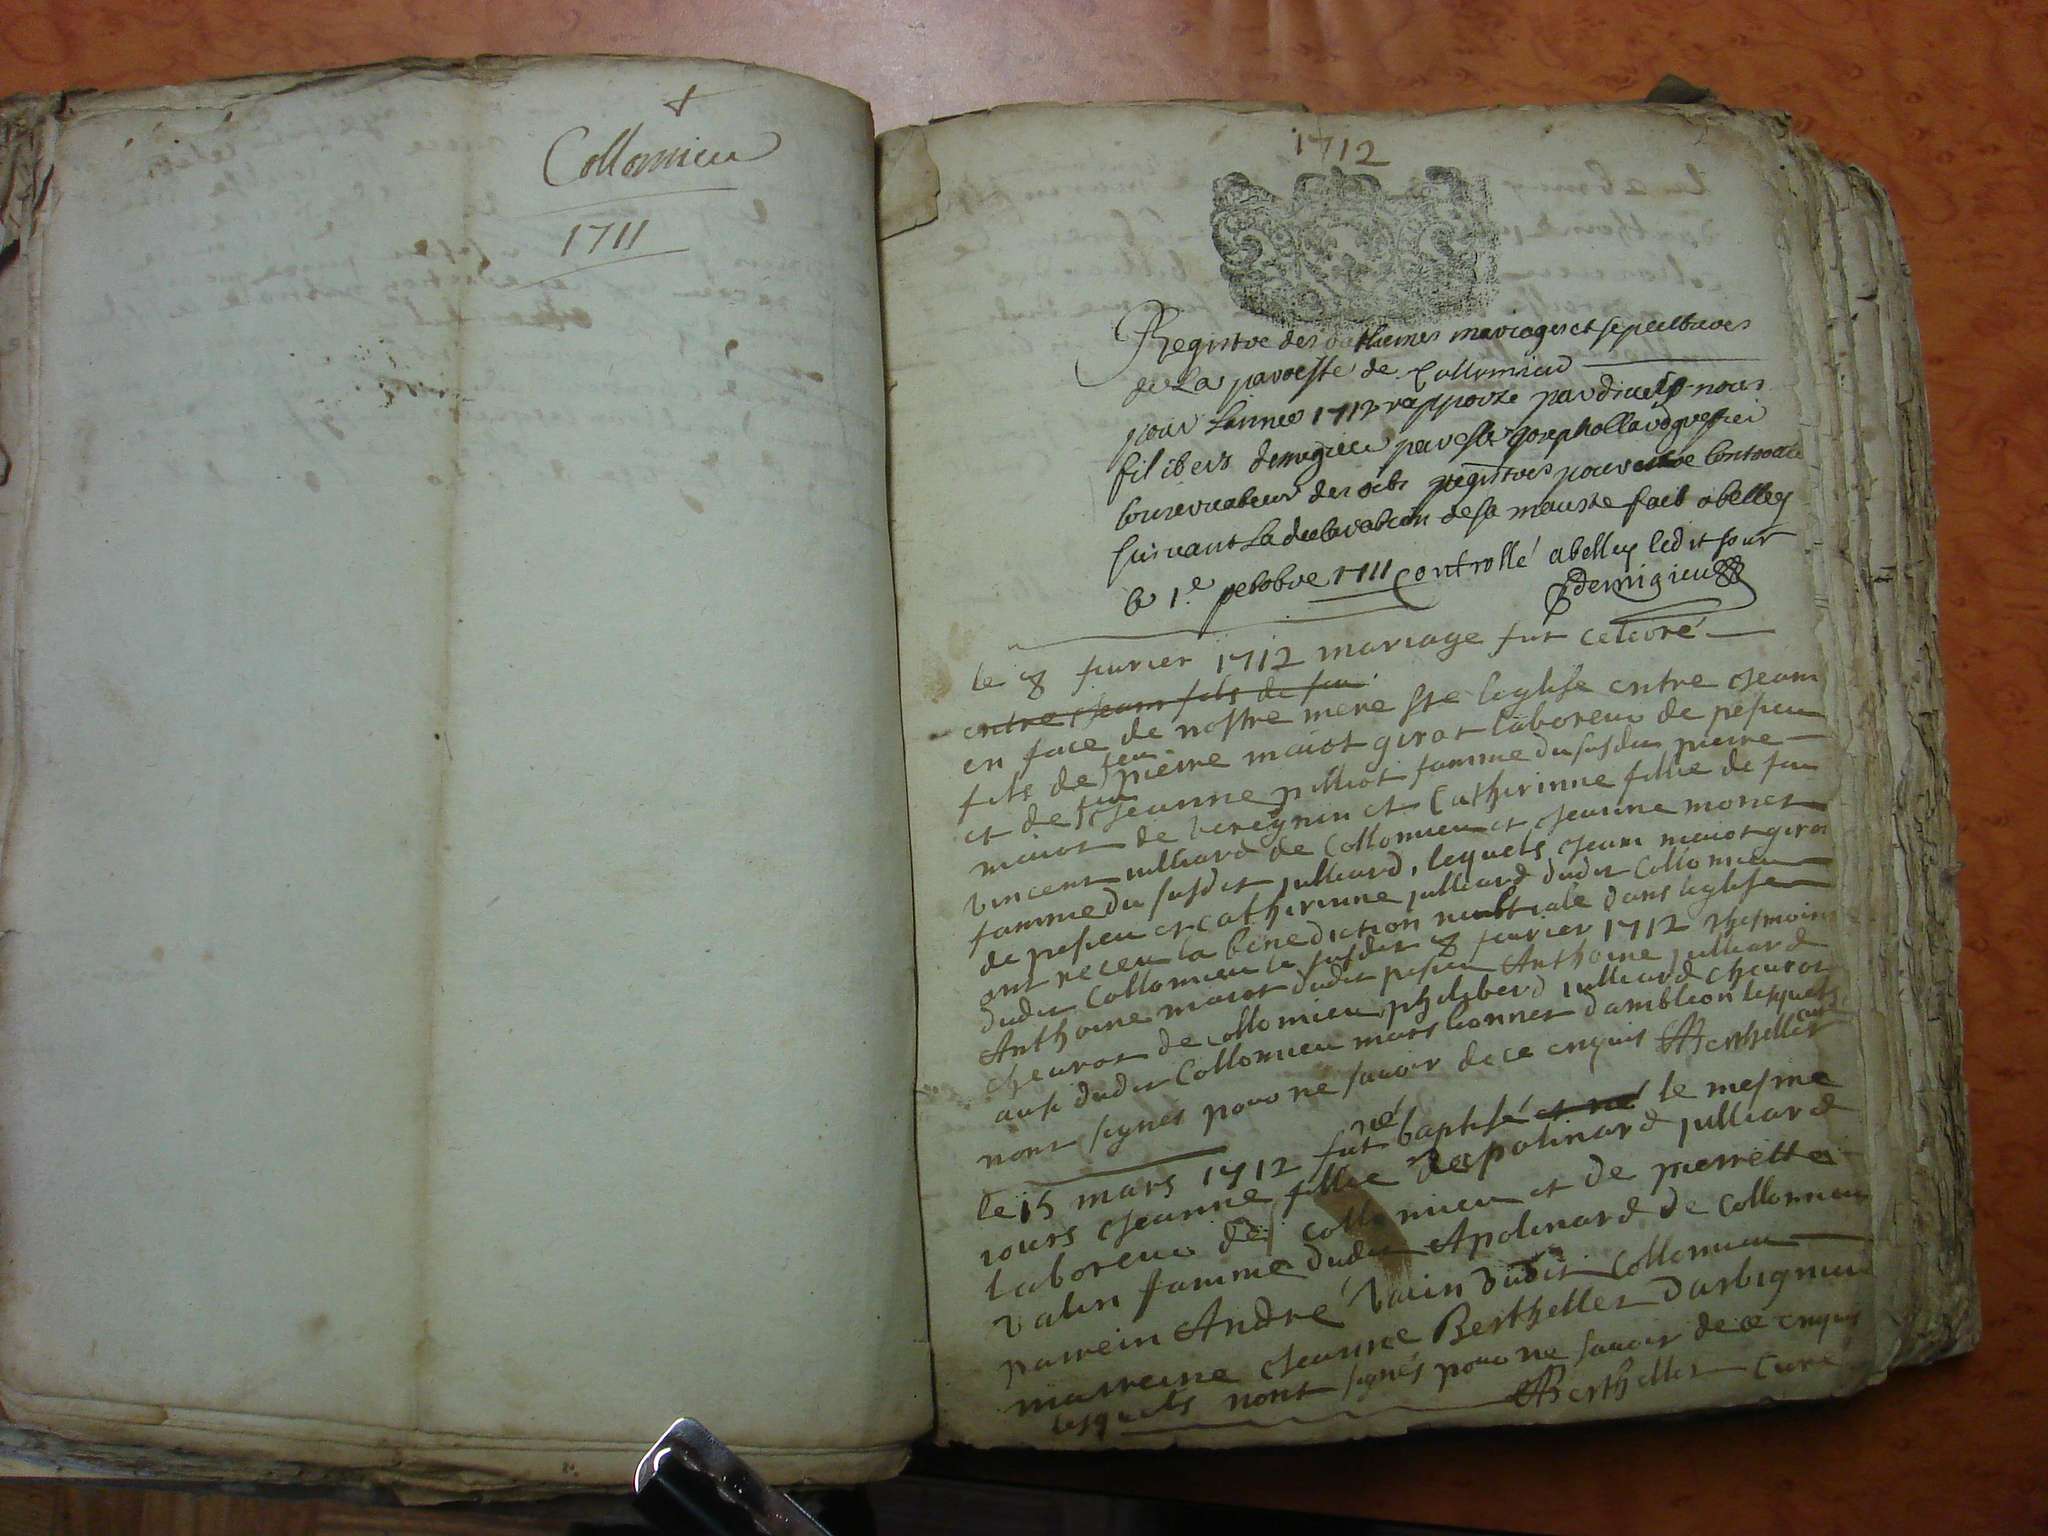 Collomieu
1711
1712
Registre des bathemes mariages et sepultures
de La paroesse de Collomieu
pour Lannee 1712 rapporté par dict nous
filibers demigieu
des registres pour
suivant La declaration de sa fait a belley
le 1.e 1711 Controllé a belley ledit jour
Demigieu
le 8 feurier 1712 mariage fut celebré
entre Jean fils de feu
en face de nostre mere ste leglise entre Jean
fils de feu pierre maiot girot laboreur de pesieu
et de feu Jeanne pilliot famme du susdit pierre
maiot de veregnin et Catherinne fillie de feu
vincent iulliard de Collomieu et Jeanne monet
famme du susdit julliard, lequels Jean maiot girot
de pesieu et catherinne julliard dudit Collomieu
ont receu la benediction nubtiale dans leglise
dudit Collomieu le susdit 8 feurier 1712 thesmoins
Anthoine maiot dudit pesieu Anthoine julliard
cheurot de collomieu, philiberd julliard cheurot
aussi dudit Collomieu mars bonnet damblion lesquels
nont signes pour ne sauoir de ce enquis Berthellet curé
le 15 mars 1712 fut né baptisé et né le mesme
iours Jeanne fillie dapolinard julliard
laboreur de collomieu et de pierrette
valin famme dudit Apolinard de Collomieu
parrein André Valin dudit Collomieu
marreine Jeanne Berthellet darbignieu
lesquels nont signés pour ne sauoir de ce enquis
Berthellet Curé